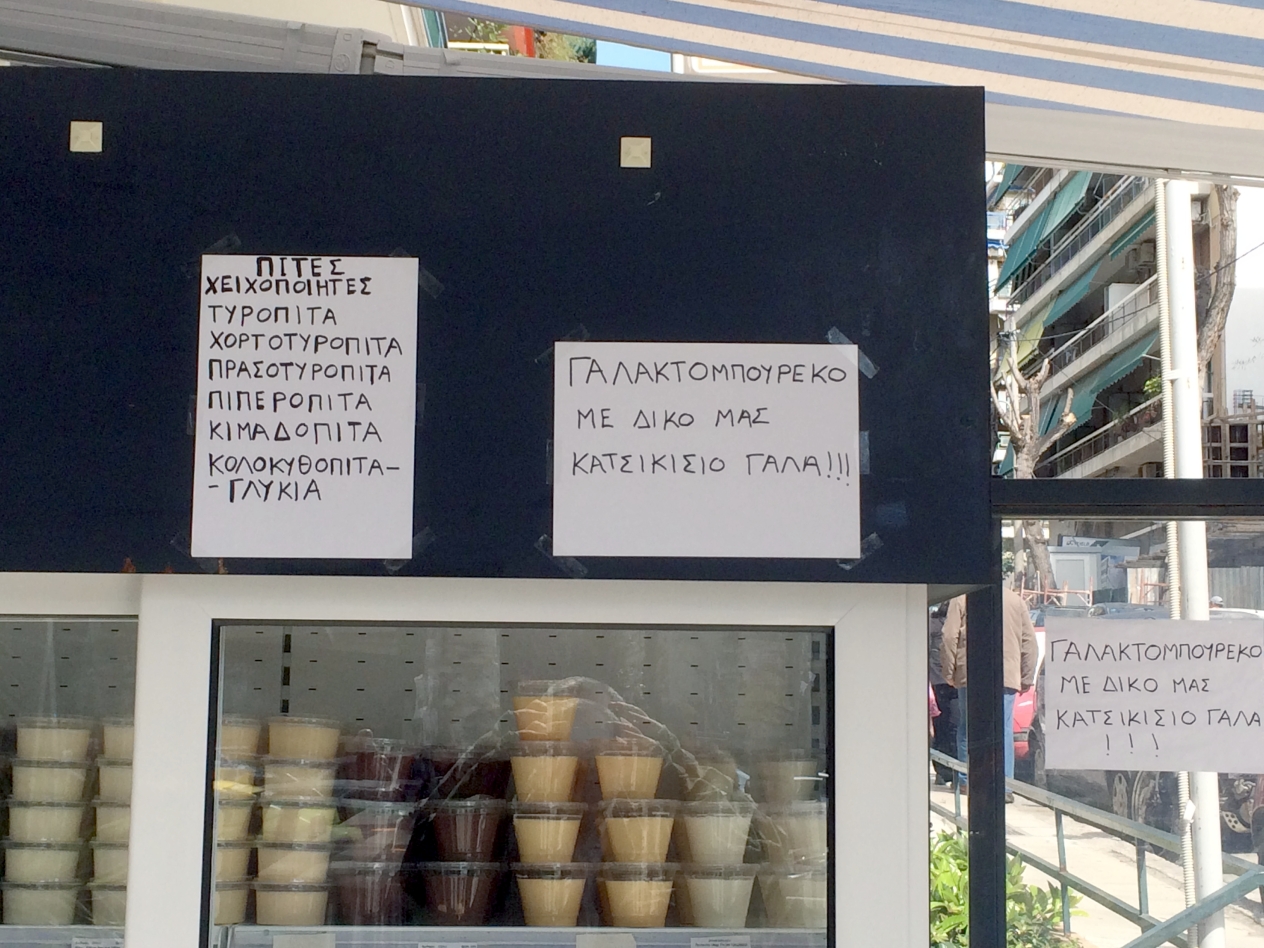 ΠΙΤΕΣ
ΧΕΙΧΟΠΟΙΗΤΕΣ
ΤΥΡΟΠΙΤΑ
ΧΟΡΤΟΤΥΡΟΠΙΤΑ
ΠΡΑΣΟΤΥΡΟΠΙΤΑ
ΠΙΠΕΡΟΠΙΤΑ
ΚΙΜΑΔΟΠΙΤΑ
ΚΟΛΟΚΥΘΟΠΙΤΑ-
-ΓΛΥΚΙΑ
ΓΑΛΑΚΤΟΜΠΟΥΡΕΚΟ
ΜΕ ΔΙΚΟ ΜΑΣ
ΚΑΤΣΙΚΙΣΙΟ ΓΑΛΑ!!!
ΓΑΛΑΚΤΟΜΠΟΥΡΕΚΟ
ΜΕ ΔΙΚΟ ΜΑΣ
ΚΑΤΣΙΚΙΣΙΟ ΓΑΛΑ
!!!